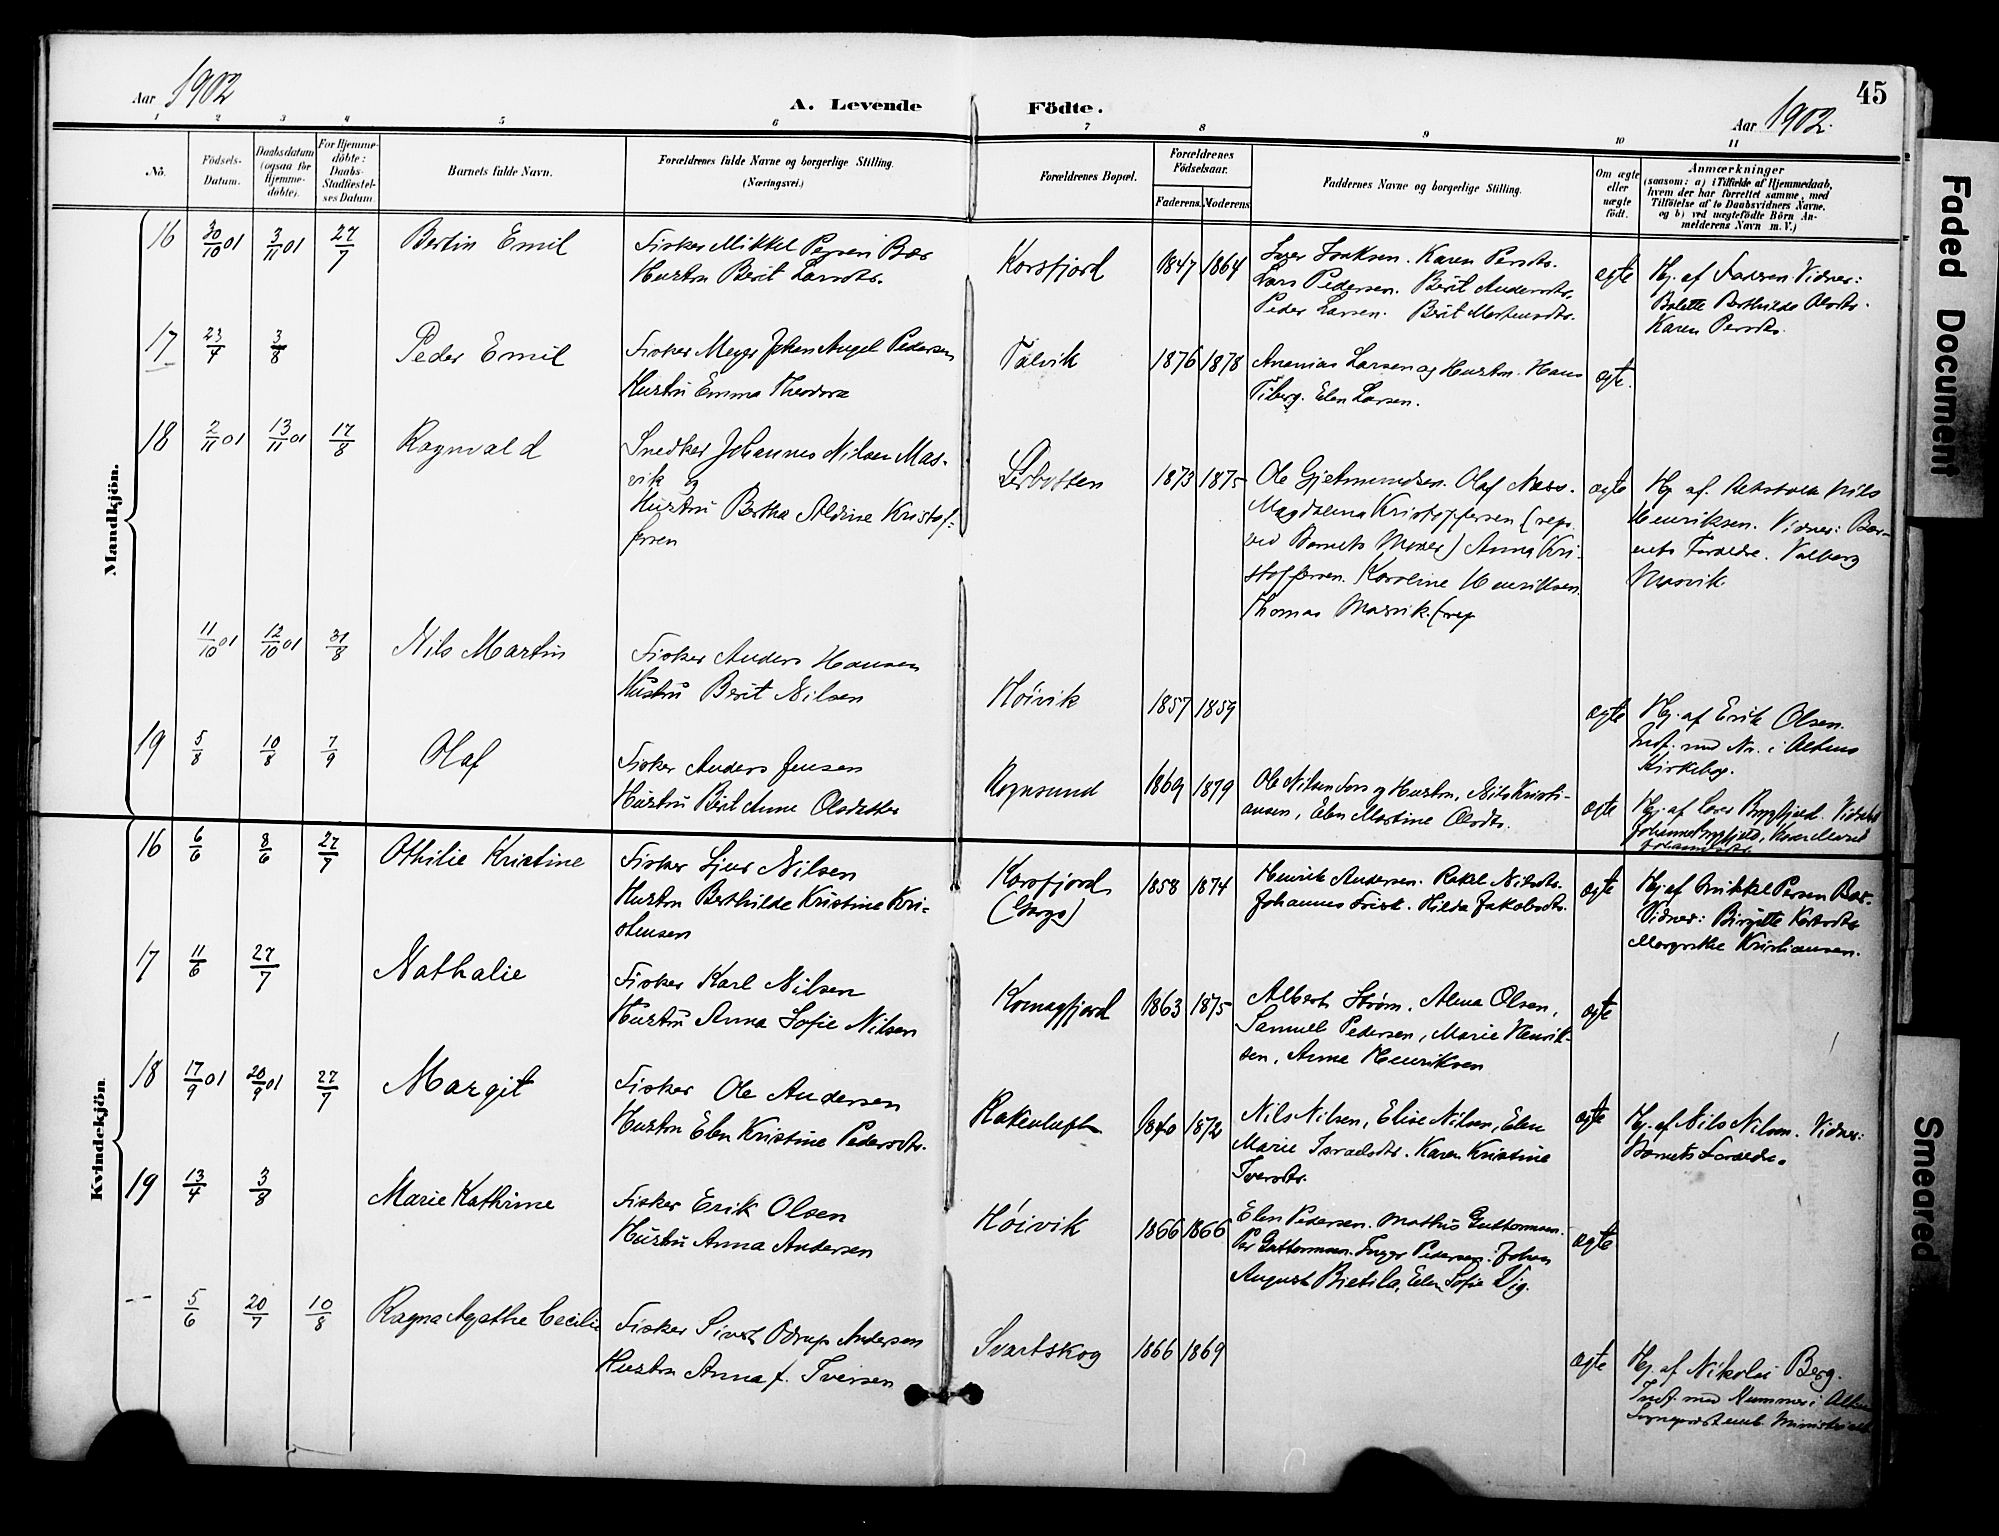 45
Aar 1902
A. Levende
Födte.
Aar 1902.
1 2 3 4 5 6 7 8 9 10 11
No.
Födsels-
Datum.
Daabsdatum
(ogsaa for
Hjemme-
döbte).
For Hjemme-
döbte:
Daabs-
Stadfæstel-
ses Datum.
Barnets fulde Navn.
Forældrenes fulde Navne og borgerlige Stilling.
(Næringsvei.)
Forældrenes Bopæl.
Forældrenes
Födselsaar.
Faderens.
Moderens
Faddernes Navne og borgerlige Stilling.
Om ægte
eller
uægte
födt.
Anmærkninger
(saasom: a) i Tilfælde af Hjemmedaab,
hvem der har forrettet samme, med
Tilföielse af to Daabsvidners Navne.
og b) ved uægtefödte Börn An-
melderens Navn m. V.)
Mandkjön.
16 30/10 01 3/11 01 27/7 Bertin Emil
Fisker Mikkel Persen Bær
Hustru Berit Larsdtr.
Korsfjord 1847 1864
Isaksen. Karen Persdtr.
Lars Pedersen. Berit Andersdtr.
Peder Larsen. Berit Mortensdtr.
ægte
Hj. af Faderen Vidner:
Bolette Berthilde Olsdtr.
Karen Persdtr.
17 23/4 3/8 Peder Emil
Fisker Meyer Johan Angel Pedersen
Hustru Emma Theodora
Talvik 1876 1878
Ananias Larsen og Hustru. Hans
Tiberg. Elen Larsen.
ægte.
18 2/11 01 13/11 01 17/8 Ragnvald
Snedker Johannes Nilsen Mas-
vik og
Hustru Bertha Aldine Kristof-
fersen
Lerbotten 1873 1875
Ole Gjetmundsen. Olaf Næss.
Magdalena Kristoffersen (rep.
ved Barnets Moder) Anna Kri-
stoffersen. Karoline Henriksen.
Thomas Masvik. (rep
ægte
Hj. af. Nils
Henriksen. Vidner: Bar-
nets Forældre. Valborg
Masvik.
11/10 01 12/10 01 31/8 Nils Martin
Fisker Anders Hansen
Hustru Berit Nilsen
Høivik 1857 1859
ægte
Hj. af Erik Olsen.
Indf. med No. i Altens
Kirkebog.
19 5/8 10/8 7/9 Olaf
Fisker Anders Jensen
Hustru Berit Anne Olsdatter
Rognsund 1869 1879
Ole Nilsen Fors og Hustru, Nils Kristi-
ansen, Elen Martine Olsdtr.
ægte
Hj. af Bryggfjeld.
Kvindekjön.
16 6/6 8/6 27/7 Othilie Kristine
Fisker Sjur Nilsen
Hustru Berthilde Kristine Kri-
stensen
Korsfjord
(Gorgo) 1858 1874
Henrik Andersen. Rakel Nilsdtr.
Johannes Frisk. Hilda Jakobsdtr.
ægte
Hj. af Mikkel Persen Bær.
Vidner: Birgitte
Margrethe Kristiansen.
17 11/6 27/7 Nathalie
Fisker Karl Nilsen
Hustru Anna Sofie Nilsen
Komagfjord 1863 1875
Albert Strøm, Alma Olsen,
Samuel Pedersen, Marie Henrik-
sen, Anne Henriksen
ægte
18 17/9 01 20/9 01 27/7 Margit
Fisker Ole Andersen
Hustru Elen Kristine Pedersdtr.
1840 1872
Nils Nilsen, Elise Nilsen, Elen
Marie Israelsdtr. Karen Kristine
Iversdtr.
ægte
Hj. af Nils Nilsen. Vidner:
Barnets Forældre.
19 13/4 3/8 Marie Kathrine
Fisker Erik Olsen
Hustru Anna Andersen
Høivik 1866 1866
Elen Pedersen. Mathis Guttormsen.
Per Guttormsen. Inger Pedersen. Johan
August Bietila, Elen Sofie Vig.
ægte
-- 5/6 20/7 10/8 Ragna Agathe Cecilie
Fisker Sivert Odrup Andersen
Hustru Anna f. Iversen
Svartskog 1866 1869
ægte
Hj. af Nikolai Berg.
Indf. med Nummer i Alten
Faded Document
Smeared